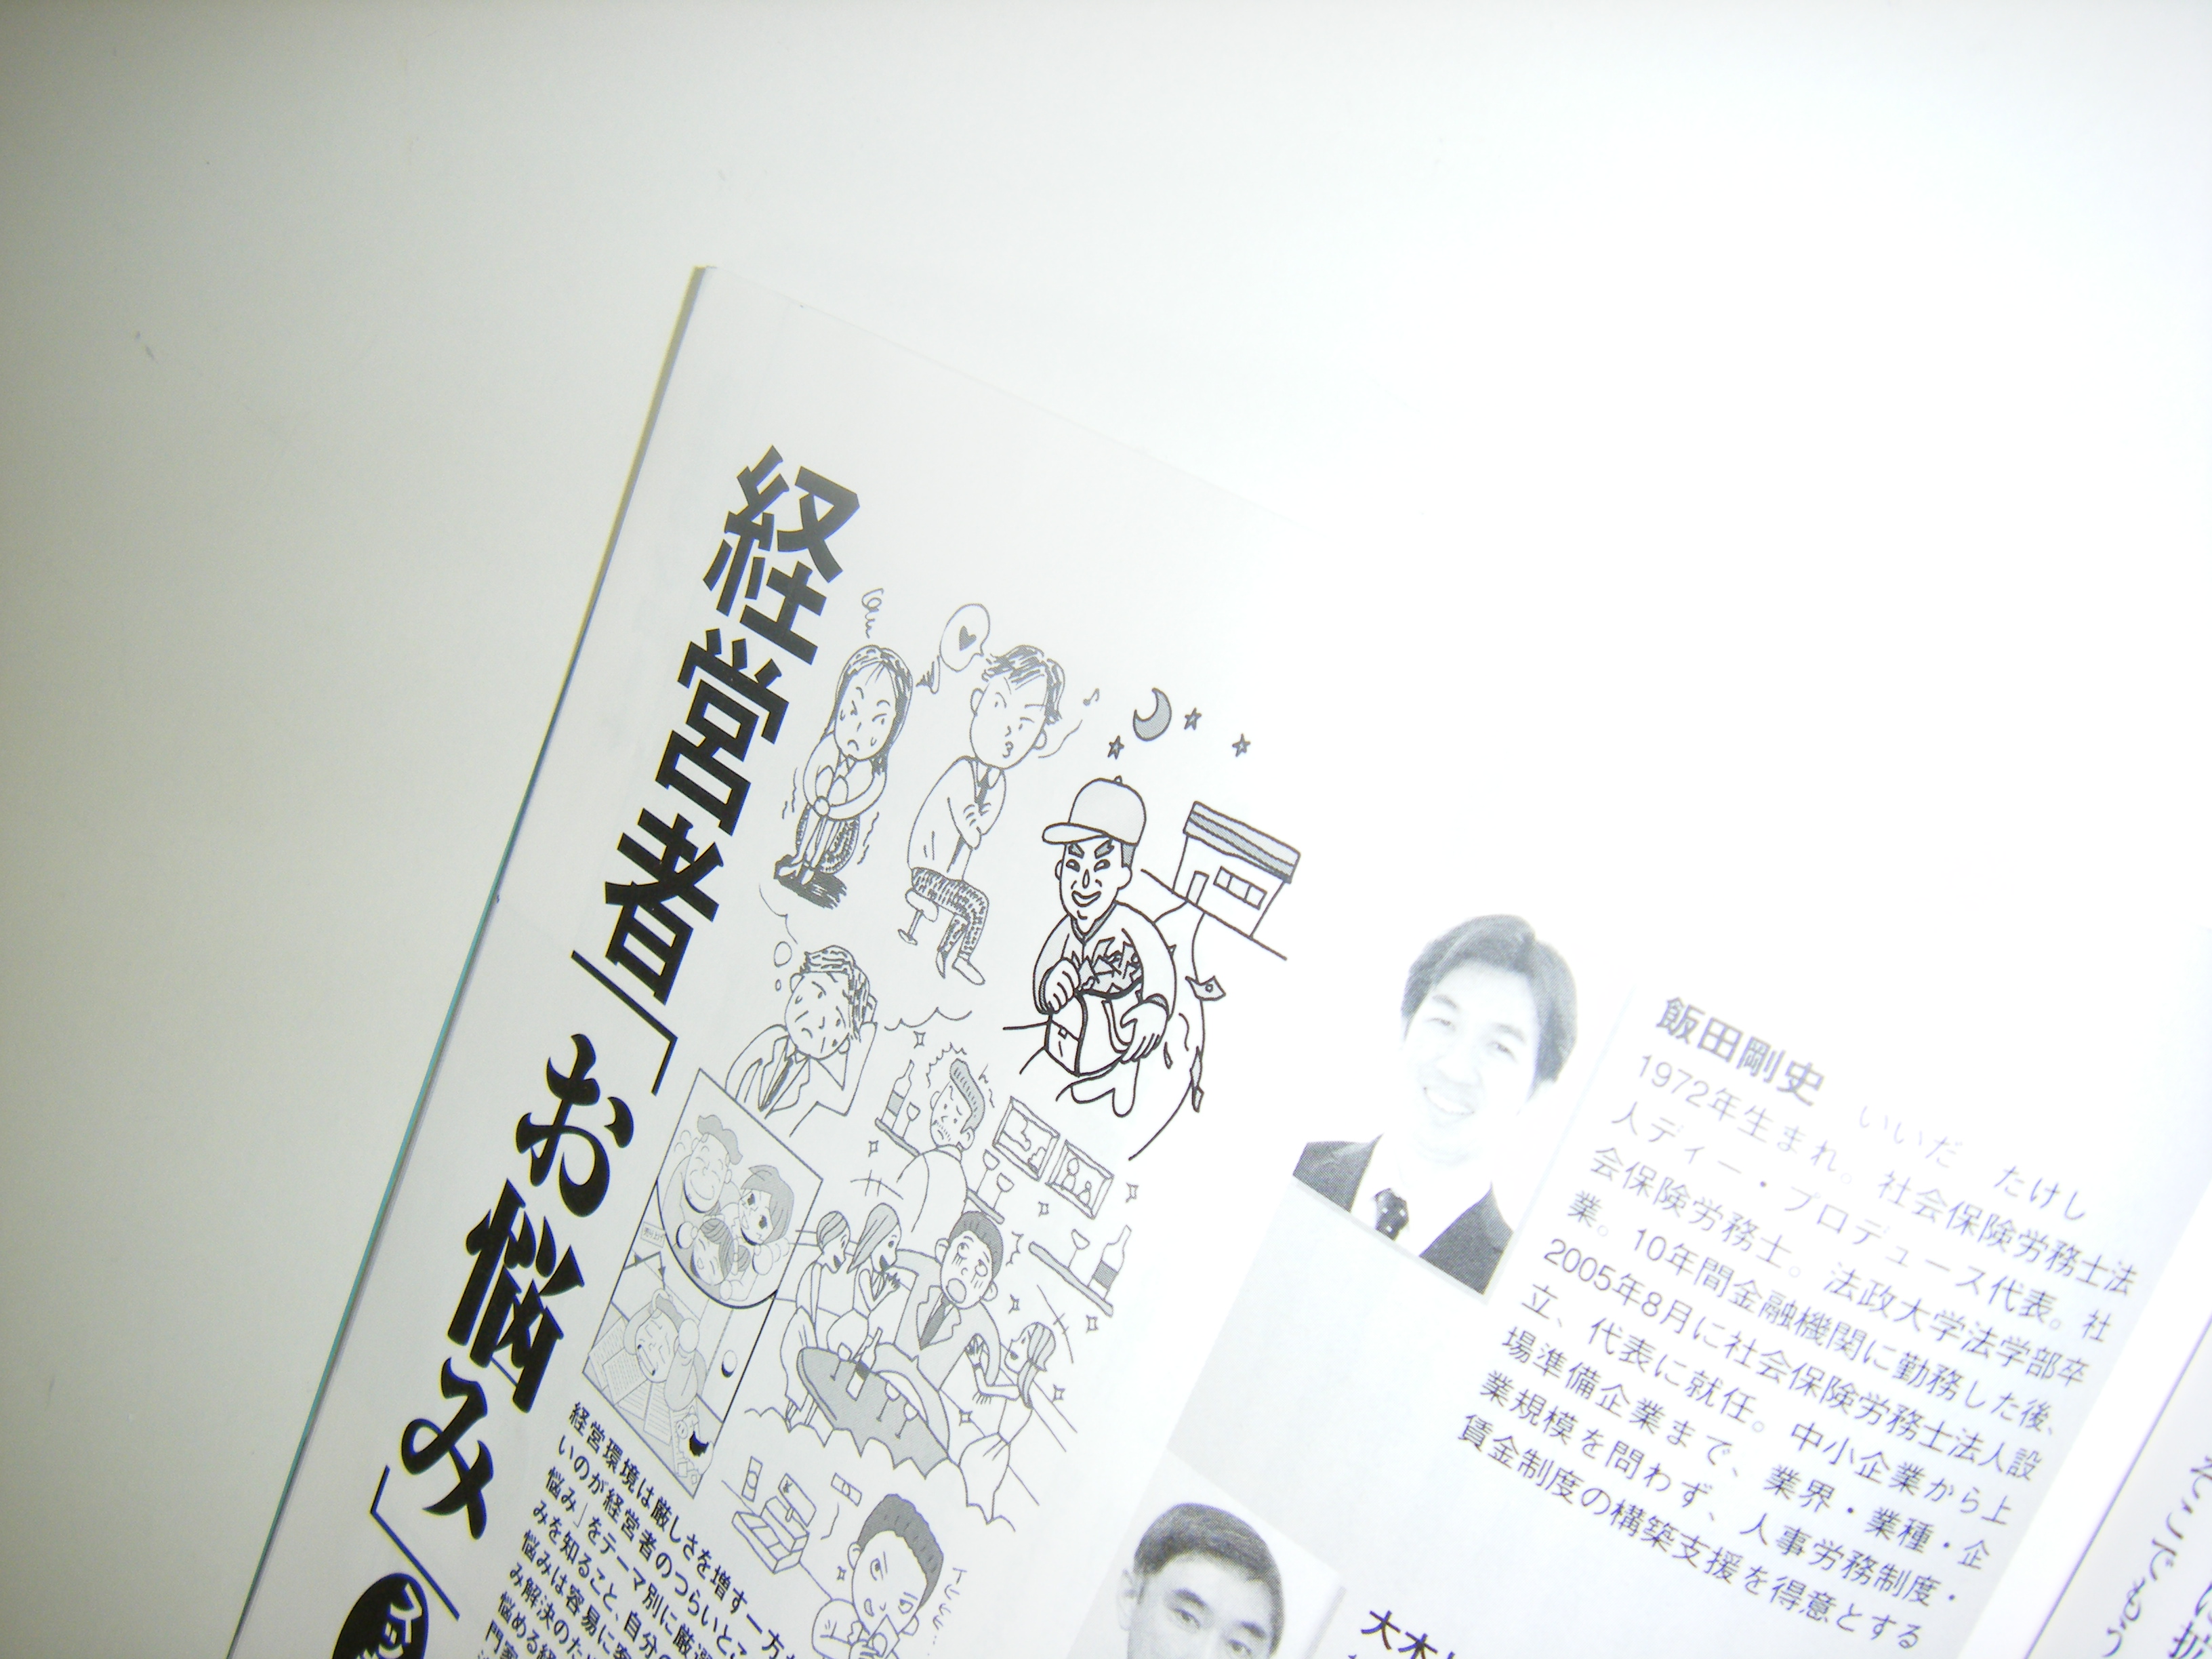 経営者「お悩み」
経営環境は厳しさを増す一方
いのが経営者のつらいとこ
悩み」をテーマ別に厳選
みを知ること、自分の
悩みは容易に
み解決のた
悩める経
飯田剛史 いいだ たけし
1972年生まれ。社会保険労務士法
人ディー・プロデュース代表。社
会保険労務士。法政大学法学部卒
業。10年間金融機関に勤務した後、
2005年8月に社会保険労務士法人設
立、代表に就任。中小企業から上
場準備企業まで、業界・業種・企
業規模を問わず、人事労務制度・
賃金制度の構築支援を得意とする
大木
そこで